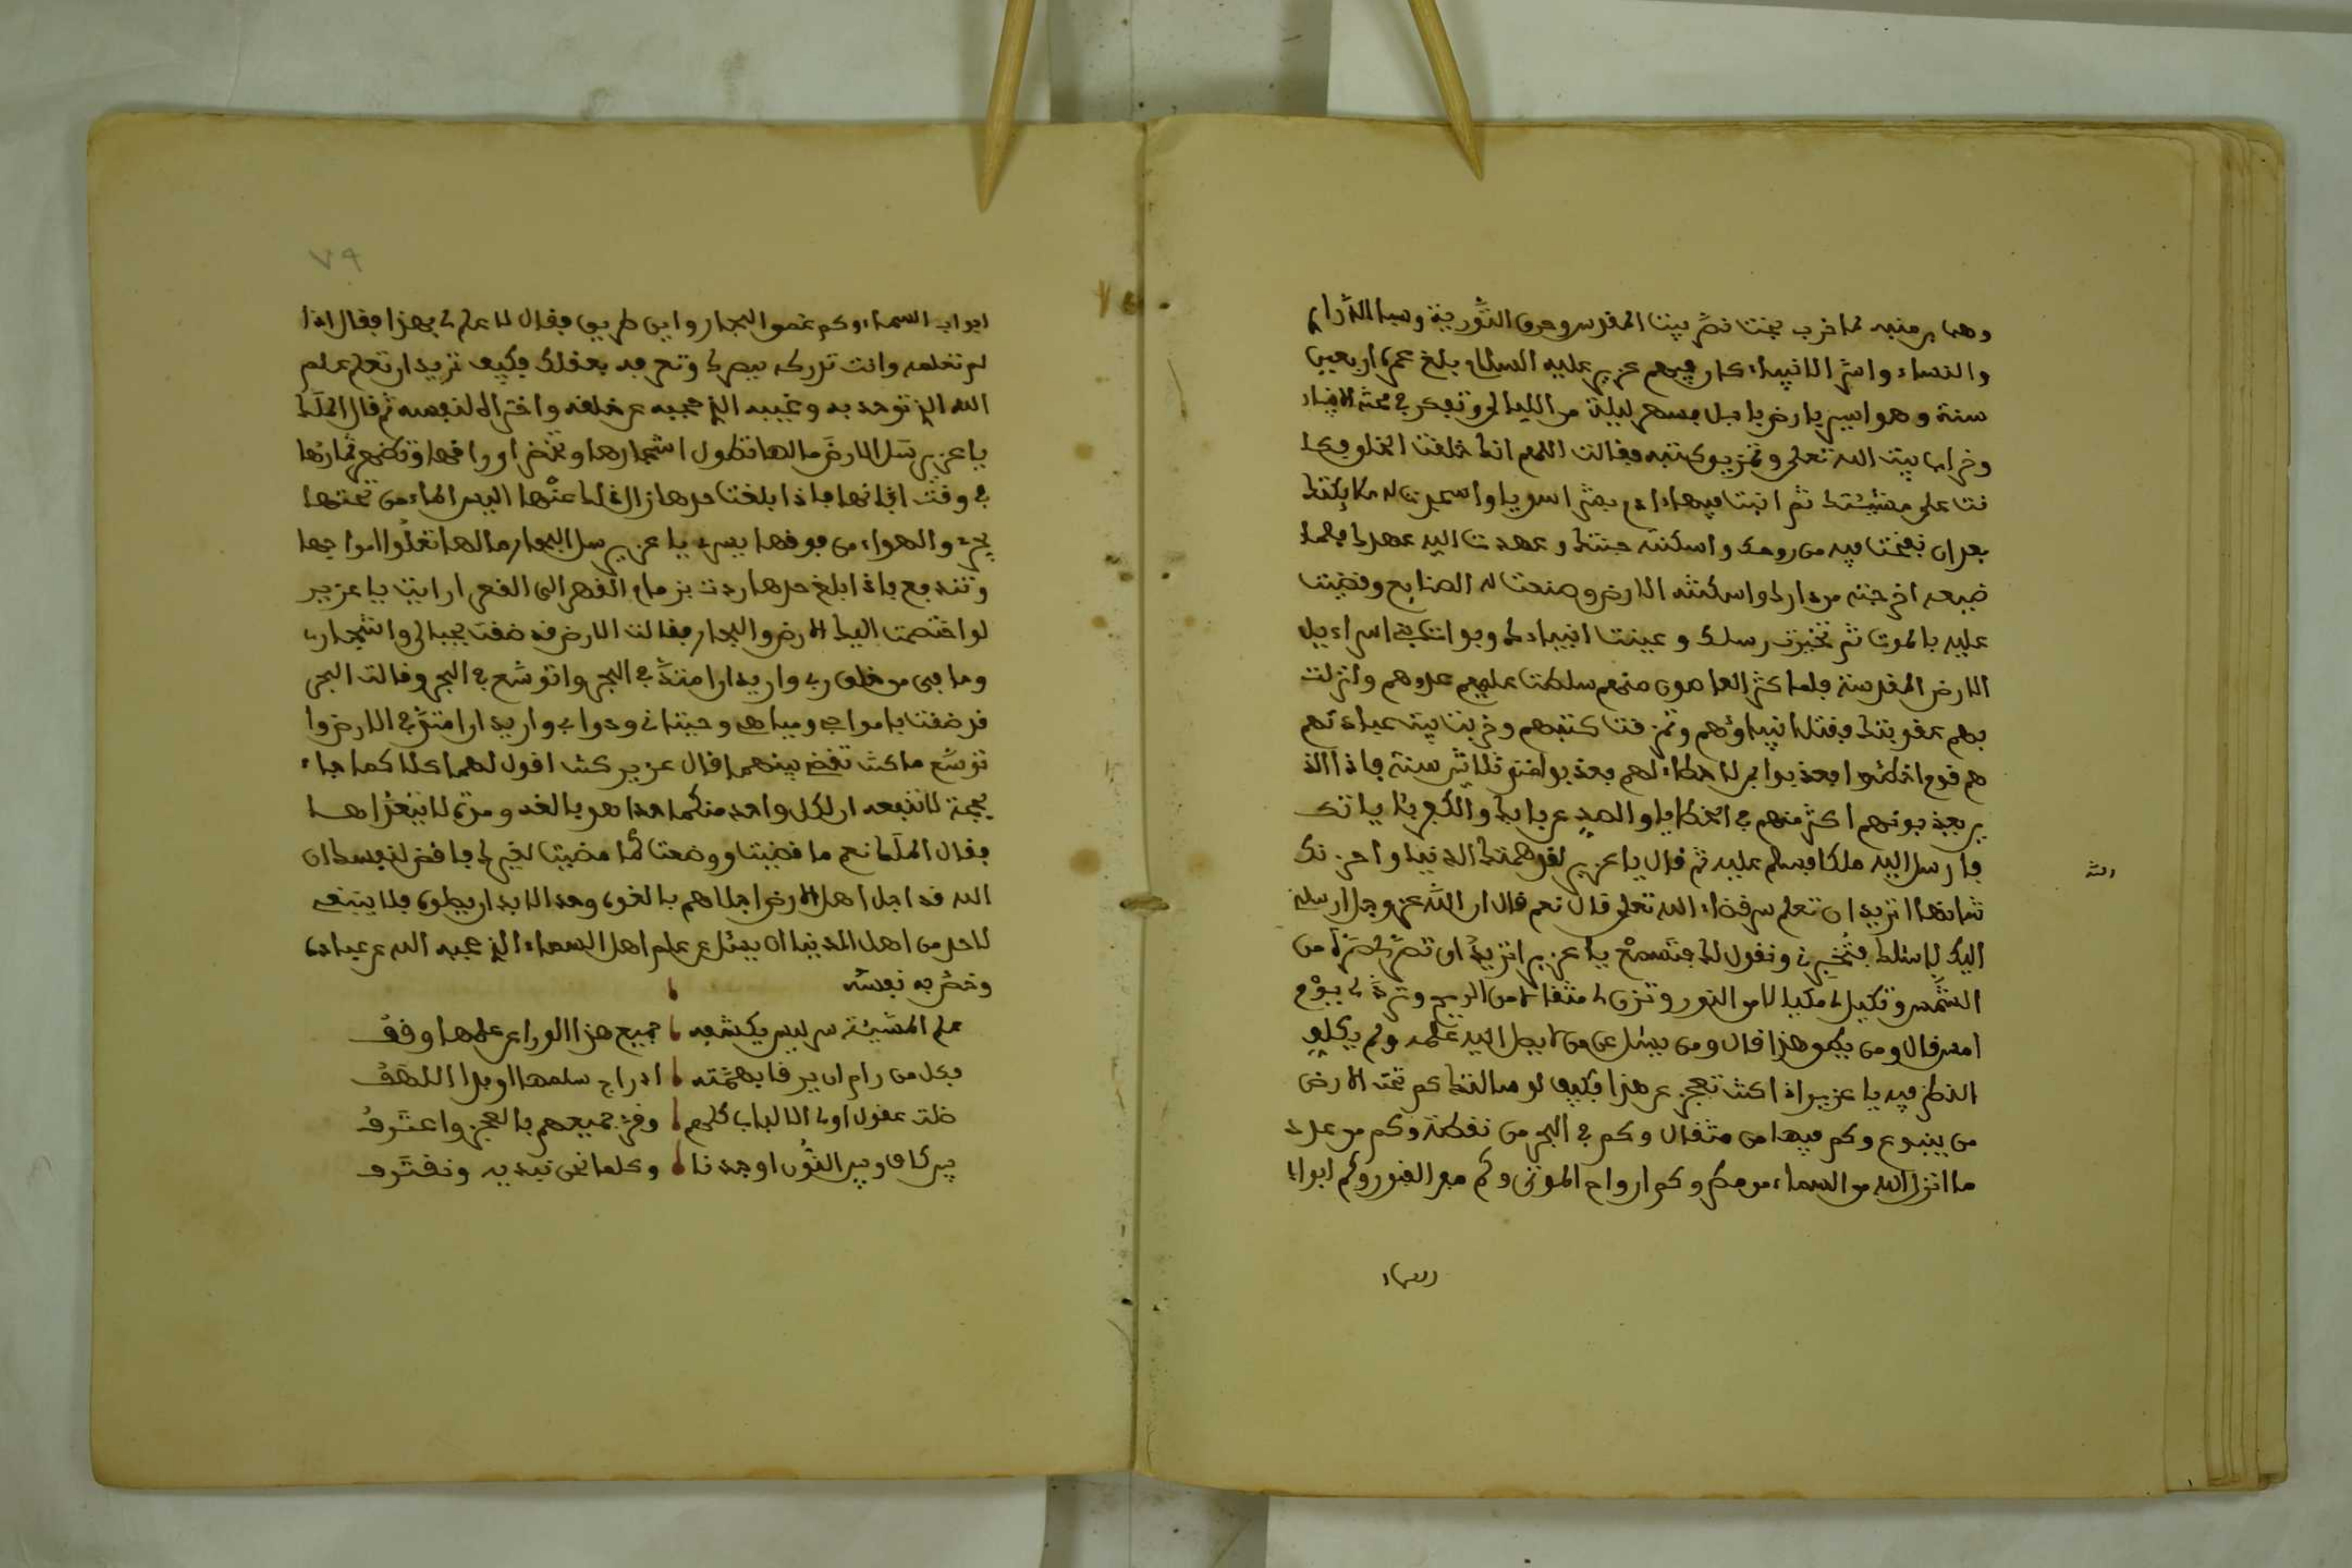 وهب بن منبه لما خرب بختنا نصّر بيت المقدس وحرق التّورية وسبا الذّراي
والنساء واسر الانبياء كان فيهم عزير عليه السلام بلغ عمره اربعين
سنة وهو اسير بارض بابل فسهر ليلة من الليالي وتفكر في
وخراب بيت الله تعلى وتمزيق كتبه فقالت اللهم انك خلقت الخلو
على مشيئتك ثم فيها ادم بعثر اسويا واسجدت له ملايكتك
بعد ان نفخت فيه من روحك واسكنته جنتك وعهدت اليه عهدك فلما
ضيعه اخرجته من دارك واسكنته الارض وصنعت له الصنايع وقضيت
عليه بالموت ثم تخيرت رسلك وعينت انبياءك وبوات بني اسراءيل
الارض المقدسة فلما كثر العاصون منهم سلطت عليهم عدوهم وانزلت
بهم عقوبتك فقتل انبياؤهم وتمزقت كتبهم وخربت بيت عبادتهم
هم قوم اخطئوا فعذبوا لهم فعذب سنة فاذا الذ
ين يعذبونهم اكثر منهم في الخطايا والصد عن بابك والكفر باياتك
فارسل اليه ملكا فسلم عليه ثم قال يا عزير الدنيا واحزنك
شانها اتريد ان تعلم سر قضاء الله تعلى قال نعم قال ان الله عز وجل ارسلنـ
اليك لاسئلك فتُخبرني ونقول لك فتَسمعْ يا عزير اتريد ان تصرّ لي صرّة من
الشّمس وتكيل لي مكيالا من النور وتزن لي مثقالا من الريح وتردّ لي يوْم
امس قال ومن يطيق هذا قال ومن يسئل عن من لا يصل اليه علمه ولم يكلّف
النظر فيه يا عزير اذا كنت تعجز عن هذا فكيف لو سالتك كم تحت الارض
من ينبوع وكم فيها من مثقال وكم في البحر من نقطة وكم من عدد
ما انزل الله من السماء من مطر وكم ارواح الموتى وكم من القبور وكم ابواب
السماء
٧٩
ابواب السماء وكم عمق البحار واين طريق فقال لا علم لي بهذا فقال اذا
لم تعلمه وانت تدركه ببصرك وتعرفه بعقلك فكيف تريد ان تعلم علم
الله الذي توحد به وغيبه الذي حجبه عن خلقه واختاره لنفسه ثم قال الملك
يا عزير سَل الارضَ ما لها تطول اشجارها وتخضر اوراقها وتطعم ثمارُها
في وقت ابّانها فاذا بلغت حدها زال ذلك عنْها اليس الماء من تحتها
يجرے والهواء من فوقها يسرے يا عزير سل البحار ما لها تعلُوا امواجها
وتندفع فاذا بلغ حدها ردت بزمام القهر الى القعر ارايت يا عزير
لو اختصمت اليك الارض والبحار فقالت الارض قد ضقت بجبالي واشجاري
وما في من خلق ربي واريد ان امتدَّ في البحر واتوسّع في البحر وقالت البحر
قد ضقت بامواجي ومياهي وحيتاني ودوابي واريد ان امتدّ في الارض وا
توسّع ما كنت تقضي بينهما قال عزير كنت اقول لهما كلا كما جاء
بحجة لا تنفعه ان لكل واحد منكما حدا هو بالغه ومدى لا
فقال الملَك نعم ما قضيت ووضعت لمّا مضيت لغيرك فاقض لنفسك ان
الله قد اجل اهل الارض اجلا هم بالغوه وحد الابد ان يصلوه فلا ينبغي
لاحد من اهل الدنيا ان يسئل عن علم اهل السماء الذي حجبه الله عن عباده
وخصّ به نفسَه
علم المشيّئة سر ليس يكشفه جميع هذا الورا عن علمها وقفُ
فكل من رام ان يرقا بهمّته ادراج سلمها اودا اللهَفُ
ضلت عقول اولي الالباب كلهم وقرّ جميعهم بالعجز واعتَرفُ
بين كاف وبين النُّون اوجدنا وكلما نحن نبديه ونقتَرف